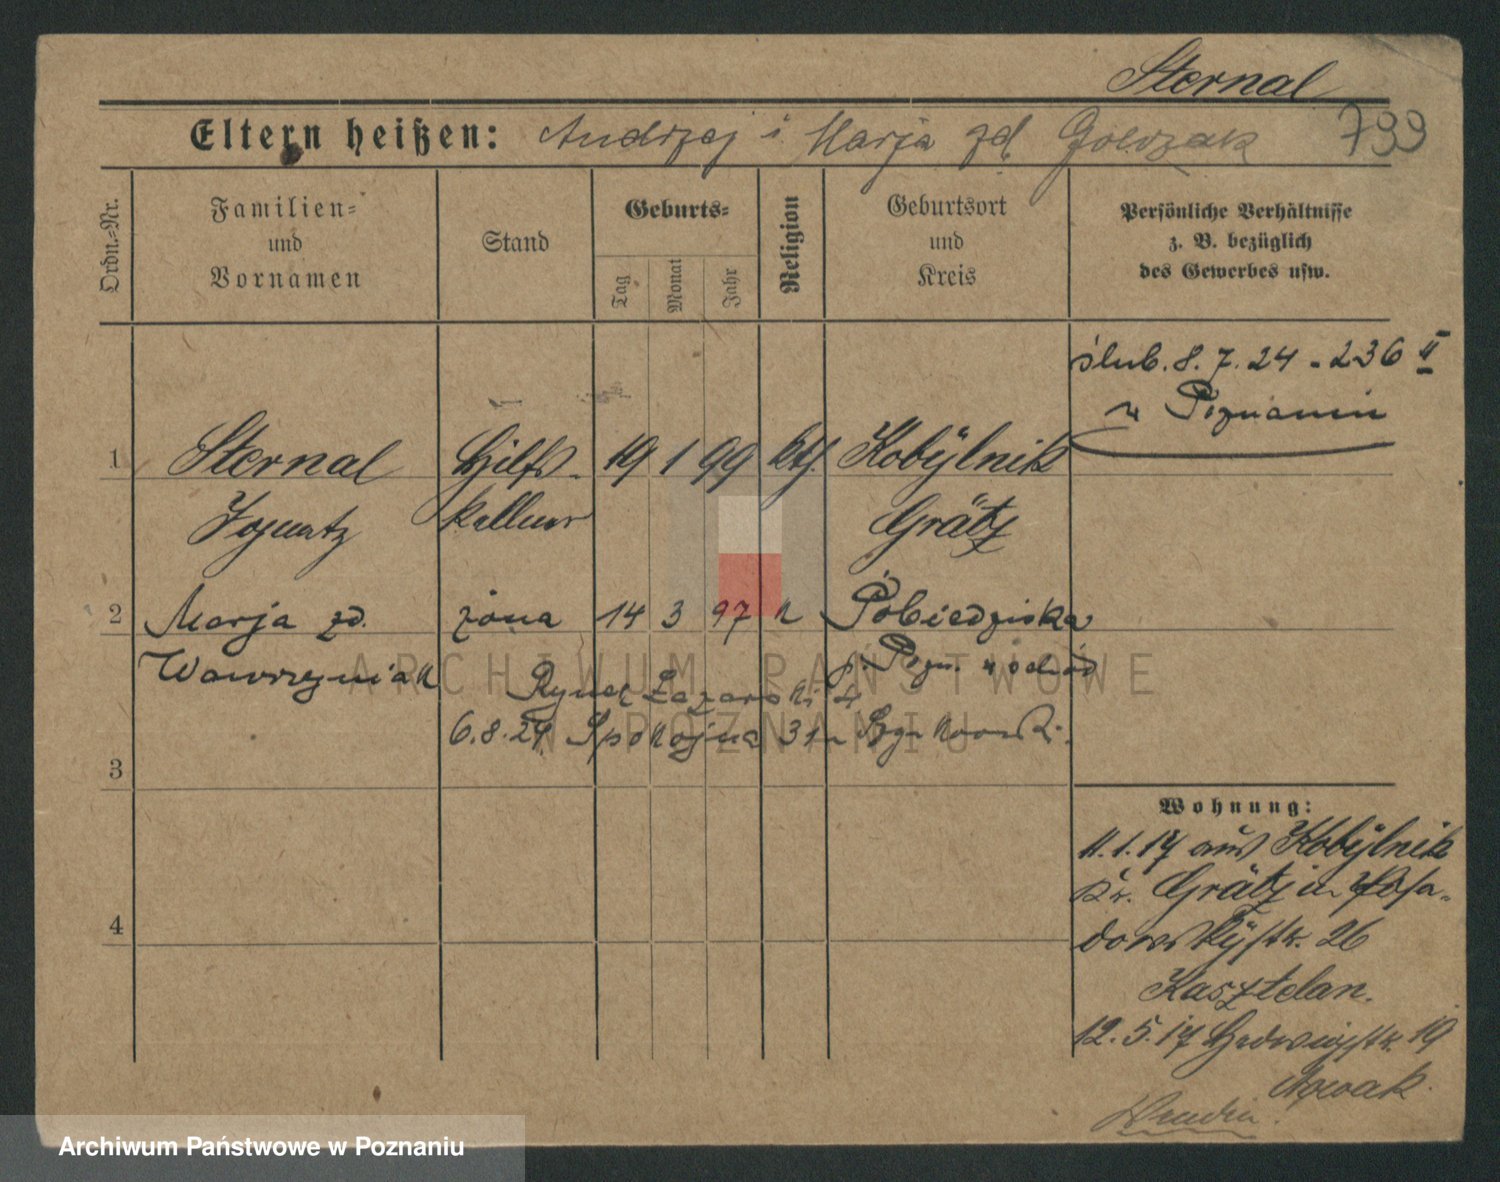 Sternal
Eltern heißen: Andrzej i Marja zd.
799
Ordn.-Nr.
Familien- und Vornamen
Stand
Geburts-
Tag
Monat
Jahr
Religion
Geburtsort und Kreis
Persönliche Verhältnisse z. B. bezüglich des Gewerbes usw.
ślub. 8. 7. 24 - 236 II
w Poznaniu
1 Sternal Hilfs- 19 1 99 kth. Kobylnik
Ignatz kellner Grätz
2 Marja zd. żona 14 3 97 k Pobiedziska
Wawrzyniak p. Pozn. wschód
Rynek Łazarski 4
6.8.24 Spokojna 31
3
4
Wohnung:
11.1.17 aus Kobylnik
Kr. Grätz in Posa-
dowskystr. 26
Kasztelan.
12.5.17 Hedwigstr. 19
Nowak.
ARCHIWUM PAŃSTWOWE
W POZNANIU
Archiwum Państwowe w Poznaniu